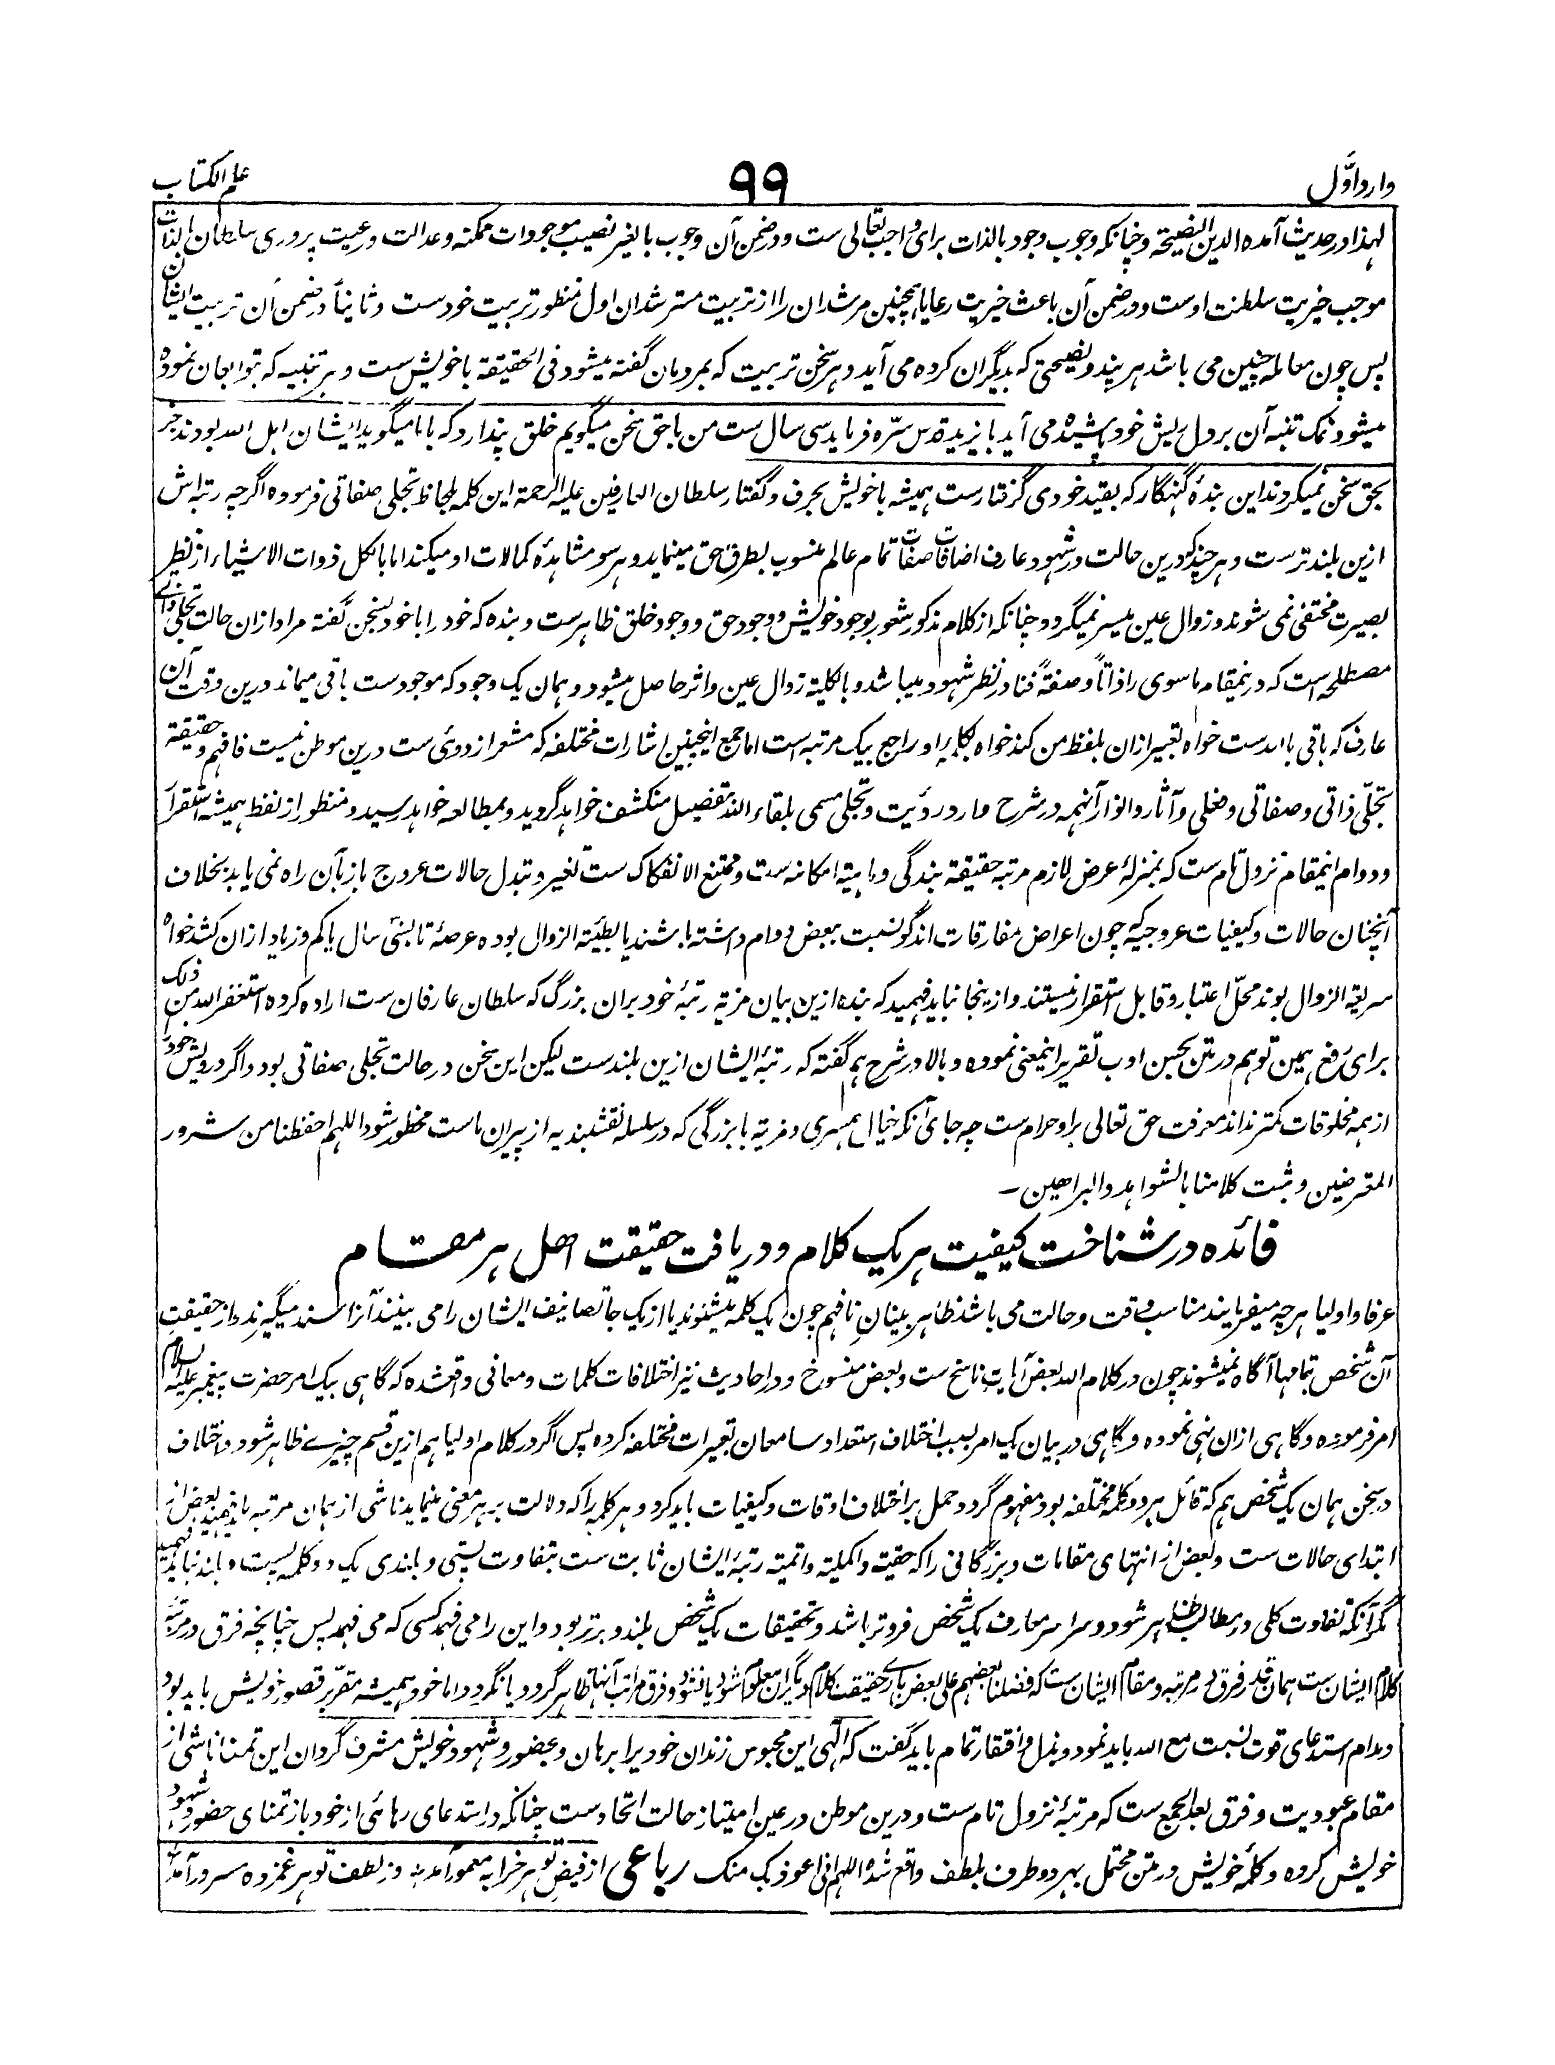 وارد اوّل
۹۹
علم الکتاب
لہذا در حدیث آمدہ الدین النصیحۃ و چنانکہ وجوب وجود بالذات برای واجب تعالی ست و در ضمن آن وجوب بالغیر نصیب موجودات ممکنہ و عدالت و رعیت پروری سلطان بالذات
موجب خیریت سلطنت اوست و در ضمن آن باعث خیریت رعایا ہمچنین مرشدان را از تربیت مسترشدان اول منظور تربیت خودست و ثانیاً در ضمن آن تربیت ایشان
پس چون معاملہ چنین می باشد ہر پند و نصیحتی کہ بدیگران کردہ می آید و ہر سخن تربیت کہ بمردمان گفتہ میشود فی الحقیقۃ با خویش ست و ہر تنبیہ کہ بتوابعان نمودہ
میشود نمک تنبہ آن بر دل ریش خود پاشیدہ می آید بایزید قدس سرّہ فرماید سی سال ست من با حق سخن میگویم خلق پندارد کہ باما میگوید ایشان اہل اللہ بودند جز
بحق سخن نمیکردند این بندۂ گنہگار کہ بقید خودی گرفتارست ہمیشہ با خویش بحرف و گفتار سلطان العارفین علیہ الرحمۃ این کلمہ بلحاظ تجلی صفاتی فرمودہ اگرچہ رتبہ اش
ازین بلندترست و ہر چند کہ درین حالت در شہود عارف اضافات صفات تمام عالم منسوب بطرف حق مینماید و ہر سو مشاہدۂ کمالات او میکند اما بالکل ذوات الاشیاء از نظر
بصیرت مختفی نمی شوند و زوال عین میسر نمیگردد چنانکہ از کلام مذکور شعور بوجود خویش و وجود حق و وجود خلق ظاہرست و بندہ کہ خود را با خود بسخن گفتہ مراد ازان حالت تجلی ذاتی
مصطلحہ است کہ درینمقام ماسوی را ذاتاً و صفۃً فنا در نظر شہود میباشد و بالکلیۃ زوال عین و اثر حاصل میشود و ہمان یک وجود کہ موجودست باقی میماند درین وقت آن
عارف کہ باقی باللہ ست خواہ تعبیر ازان بلفظ من کند خواہ بکلمہ او راجع بیک مرتبہ است اما جمع اینچنین اشارات مختلفہ کہ مشعر از دوئی ست درین موطن نیست فافہم و حقیقۃ
تجلّی ذاتی و صفاتی و فعلی و آثار و انوار آنہمہ در شرح وارد رؤیت و تجلی مسمی بلقاء اللہ بتفصیل منکشف خواہد گردید و بمطالعہ خواہد رسید و منظور از لفظ ہمیشہ استقرار
و دوام اینمقام نزول تام ست کہ بمنزلۂ عرض لازم مرتبہ حقیقۃ بندگی و ماہیۃ امکانہ ست و ممتنع الانفکاک ست تغیر و تبدل حالات عروج باز بآن راہ نمی یابد بخلاف
آنچنان حالات و کیفیات عروجیہ کہ چون اعراض مفارقات اند گو نسبت ببعض دوام داشتہ باشند یا بطیئۃ الزوال بودہ عرصۂ تا سی سال یا کم و زیاد ازان کشد خواہ
سریعۃ الزوال بوند محلّ اعتبار و قابل استقرار نیستند و ازینجا نباید فہمید کہ بندہ ازین بیان مزیۃ رتبۂ خود بران بزرگ کہ سلطان عارفان ست ارادہ کردہ استغفر اللہ من ذلک
برای رفع ہمین توہم در متن بحسن ادب تقریر اینمعنی نمودہ و بالا در شرح ہم گفتہ کہ رتبۂ ایشان ازین بلندست لیکن این سخن در حالت تجلی صفاتی بود و اگر درویش خود را
از ہمہ مخلوقات کمتر نداند معرفت حق تعالی براو حرام ست چہ جای آنکہ خیال ہمسری و مزیۃ با بزرگی کہ در سلسلہ نقشبندیہ از پیران ماست مخطور شود اللہم احفظنا من شرور
المعترضین و ثبت کلامنا بالشواہد والبراہین ۔
فائدہ در شناخت کیفیت ہر یک کلام و دریافت حقیقت اہل ہر مقام
عرفا و اولیا ہرچہ میفرمایند مناسب وقت و حالت می باشد ظاہر بینان نافہم چون یک کلمہ میشنوند یا از یک جا تصانیف ایشان را می بینند آنرا سند میگیرند و از حقیقت
آن شخص بتمامہا آگاہ نمیشوند چون در کلام اللہ بعض آیات ناسخ ست و بعض منسوخ و در احادیث نیز اختلافات کلمات و معانی واقعشدہ کہ گاہی بیک امر حضرت پیغمبر علیہ السلام
امر فرمودہ و گاہی ازان نہی نمودہ و گاہی در بیان یک امر بسبب اختلاف استعداد سامعان تعبیرات مختلفہ کردہ پس اگر در کلام اولیا ہم ازین قسم چیزے ظاہر شود و اختلاف
در سخن ہمان یک شخص ہم کہ قائل ہر دو کلمہ مختلفہ بود مفہوم گردد حمل بر اختلاف اوقات و کیفیات باید کرد و ہر کلمہ را کہ دلالت بر ہر معنی مینماید ناشی از ہمان مرتبہ باید فہمید بعض از
ابتدای حالات ست و بعض از انتہای مقامات و بزرگانی را کہ حقیت و اکملیۃ و اتمیۃ رتبہ ایشان ثابت ست بتفاوت پستی و بلندی یک دو کلمہ پست و بلند نباید فہمید
مگر آنکہ تفاوت کلی در مطالب ظاہر شود و سراسر معارف یک شخص فروتر باشد و تحقیقات یک شخص بلند و برتر بود و این را می فہمد کسی کہ می فہمد پس چنانچہ فرق در مرتبۂ
کلام ایشان ست ہمان قدر فرق در مرتبہ و مقام ایشان ست کہ فضلنا بعضہم علی بعض بارے حقیقت کلام دیگران معلوم شود یا نشود و فرق مراتب آنہا ظاہر گردد یا نگردد اما خود ہمیشہ مقرّ بر قصور خویش باید بود
و مدام استدعای قوت نسبت مع اللہ باید نمود و بذل و افتقار تمام باید گفت کہ الٰہی این محبوس زندان خود را برہان و بحضور و شہود خویش مشرف گردان این تمنا ناشی از
مقام عبودیت و فرق بعد الجمع ست کہ مرتبۂ نزول تام ست و درین موطن در عین امتیاز حالت اتحادست چنانکہ در استدعای رہائی از خود باز تمنای حضور و شہود
خویش کردہ و کلمۂ خویش در متن محتمل بہر دو طرف بلطف واقع شدہ اللہم انی اعوذ بک منک رباعی از فیض تو ہر خرابہ معمور آمد وز لطف تو ہر غمزدہ مسرور آمد